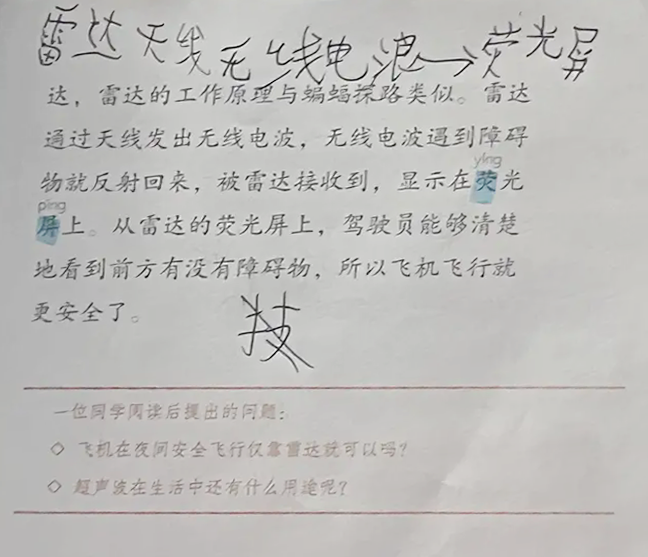 雷达天线无线电浪→荧光屏
达，雷达的工作原理与蝙蝠探路类似。雷达
通过天线发出无线电波，无线电波遇到障碍
yíng
物就反射回来，被雷达接收到，显示在荧光
píng
屏上。从雷达的荧光屏上，驾驶员能够清楚
地看到前方有没有障碍物，所以飞机飞行就
更安全了。
一位同学阅读后提出的问题：
◇ 飞机在夜间安全飞行仅靠雷达就可以吗？
◇ 超声波在生活中还有什么用途呢？